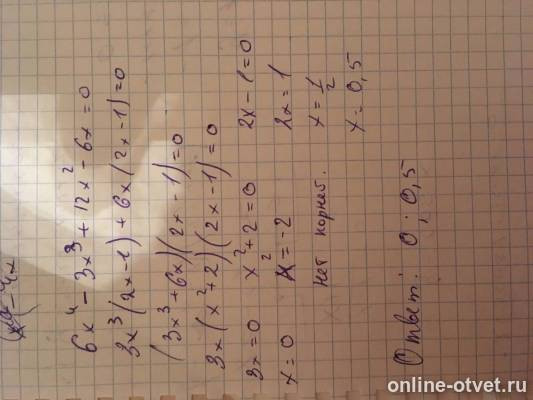 6x⁴ - 3x³ + 12x² - 6x = 0
3x³(2x-1) + 6x(2x-1) = 0
(3x³+6x)(2x-1) = 0
3x(x²+2)(2x-1) = 0
3x=0 x²+2=0 2x-1=0
x=0 x²=-2 2x=1
нет корней. x=1/2
x=0,5
Ответ: 0; 0,5
online-otvet.ru